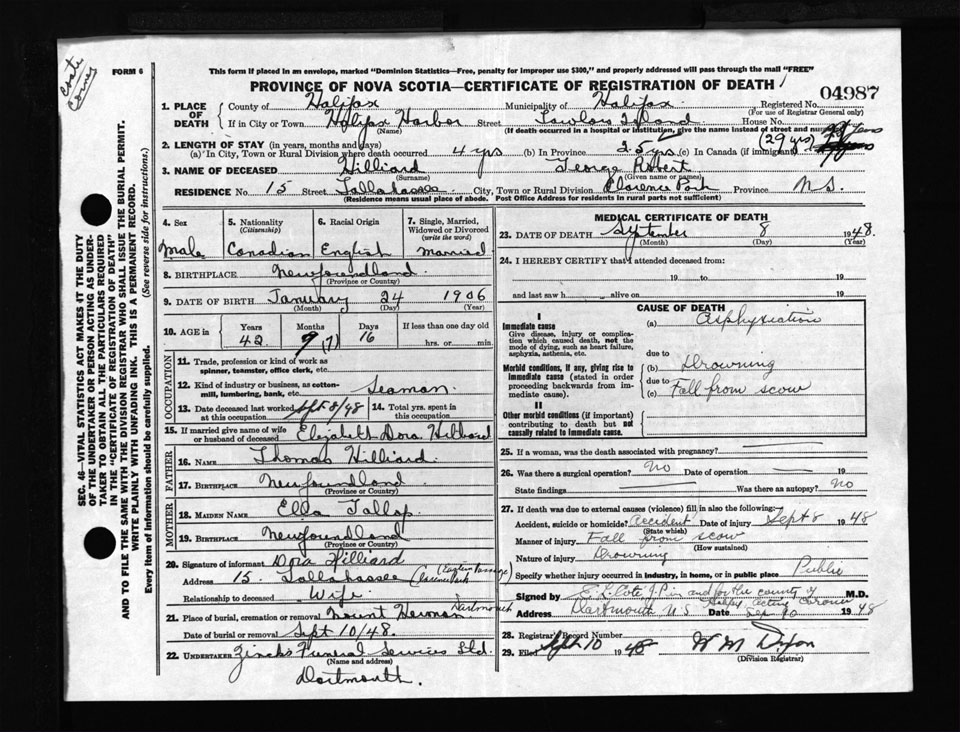 Cote
Corner
FORM 6
This form if placed in an envelope, marked "Dominion Statistics—Free, penalty for improper use $300," and properly addressed will pass through the mail "FREE"
PROVINCE OF NOVA SCOTIA—CERTIFICATE OF REGISTRATION OF DEATH
04987
1. PLACE OF DEATH
County of Halifax Municipality of Halifax Registered No.
(For use of Registrar General only)
If in City or Town Halifax Harbor Street Lawlors Island House No.
(Name) (If death occurred in a hospital or institution, give the name instead of street and number)
2. LENGTH OF STAY (in years, months and days) (29 yrs)
(a) In City, Town or Rural Division where death occurred 4 yrs (b) In Province 25 yrs (c) In Canada (if immigrant)
3. NAME OF DECEASED Hilliard George Robert
(Surname) (Given name or names)
RESIDENCE No. 15 Street Tallahassee City, Town or Rural Division Clarence Park Province N.S.
(Residence means usual place of abode. Post Office Address for residents in rural parts not sufficient)
4. Sex
Male
5. Nationality
(Citizenship)
Canadian
6. Racial Origin
English
7. Single, Married, Widowed or Divorced
(write the word)
Married
8. BIRTHPLACE Newfoundland
(Province or Country)
9. DATE OF BIRTH January 24 1906
(Month) (Day) (Year)
10. AGE in
Years Months Days If less than one day old
42 9 (7) 16 hrs. or min.
OCCUPATION
11. Trade, profession or kind of work as
spinner, teamster, office clerk, etc.
12. Kind of industry or business, as cotton-
mill, lumbering, bank, etc. Seaman
13. Date deceased last worked at this occupation Sept 8/48 14. Total yrs. spent in this occupation
15. If married give name of wife or husband of deceased Elizabeth Dora Hilliard
FATHER
16. NAME Thomas Hilliard
17. BIRTHPLACE Newfoundland
(Province or Country)
MOTHER
18. MAIDEN NAME Ella Tallop
19. BIRTHPLACE Newfoundland
(Province or Country)
20. Signature of informant Dora Hilliard
(Eastern Passage)
Address 15 Tallahassee Clarence Park
Relationship to deceased Wife
21. Place of burial, cremation or removal Mount Hermon Dartmouth
Date of burial or removal Sept 10/48.
22. UNDERTAKER Zincks Funeral Services Ltd.
(Name and address)
Dartmouth.
MEDICAL CERTIFICATE OF DEATH
23. DATE OF DEATH September 8 1948.
(Month) (Day) (Year)
24. I HEREBY CERTIFY that I attended deceased from:
19 to 19
and last saw h alive on 19
CAUSE OF DEATH
I
Immediate cause
Give disease, injury or complication which caused death, not the mode of dying, such as heart failure, asphyxia, asthenia, etc.
(a) Asphyxiation
due to
Morbid conditions, if any, giving rise to immediate cause (stated in order proceeding backwards from immediate cause).
(b) Drowning
due to
(c) Fall from scow
II
Other morbid conditions (if important) contributing to death but not causally related to immediate cause.
25. If a woman, was the death associated with pregnancy?
26. Was there a surgical operation? no Date of operation 19
State findings Was there an autopsy? no
27. If death was due to external causes (violence) fill in also the following:—
Accident, suicide or homicide? accident Date of injury Sept 8 1948
(State which)
Manner of injury Fall from scow
(How sustained)
Nature of injury Drowning
Specify whether injury occurred in industry, in home, or in public place Public
Signed by E.L. Cote J.P. in and for the county of M.D.
Halifax acting Coroner
Address Dartmouth N.S. Date Sep 10 1948
28. Registrar's Record Number
29. Filed Sept 10 1948 W M Dixon
(Division Registrar)
SEC. 46—VITAL STATISTICS ACT MAKES IT THE DUTY
OF THE UNDERTAKER OR PERSON ACTING AS UNDER-
TAKER TO OBTAIN ALL THE PARTICULARS REQUIRED
IN THE "CERTIFICATE OF REGISTRATION OF DEATH"
AND TO FILE THE SAME WITH THE DIVISION REGISTRAR WHO SHALL ISSUE THE BURIAL PERMIT.
WRITE PLAINLY WITH UNFADING INK. THIS IS A PERMANENT RECORD.
Every item of information should be carefully supplied. (See reverse side for instructions.)